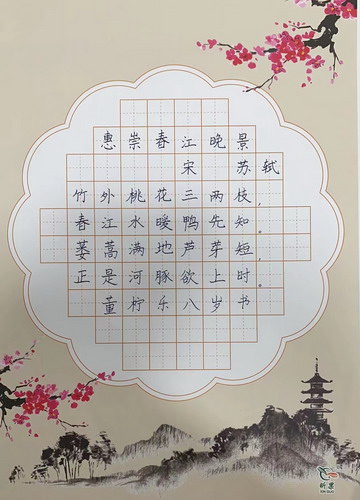 惠崇春江晚景
宋 苏轼
竹外桃花三两枝,
春江水暖鸭先知。
蒌蒿满地芦芽短,
正是河豚欲上时。
董柠乐八岁书
昕墨